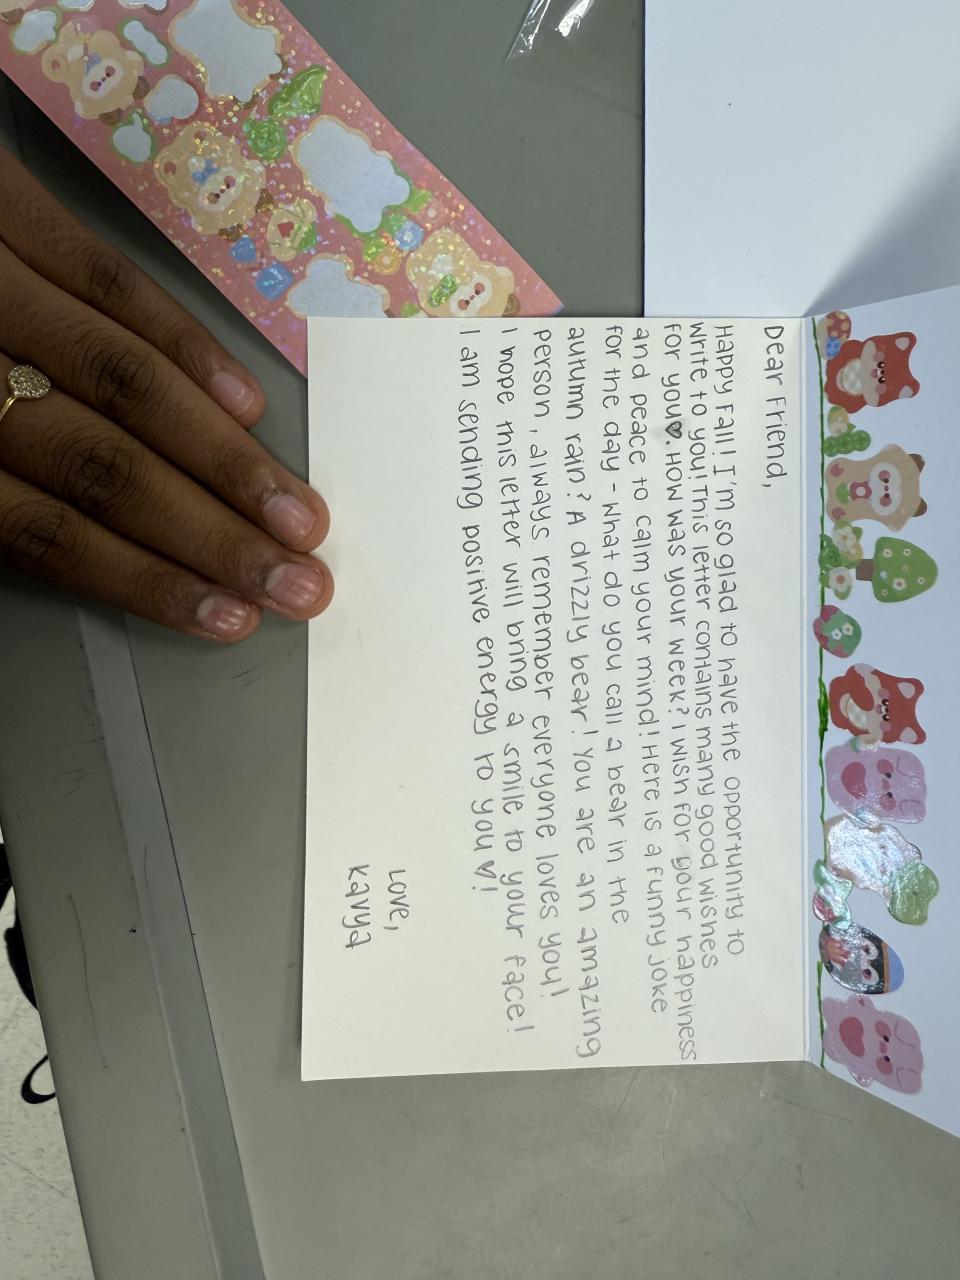 Dear Friend,
Happy Fall! I'm so glad to have the opportunity to
write to you! This letter contains many good wishes
for you♥. How was your week? I wish for your happiness
and peace to calm your mind! Here is a funny joke
for the day - What do you call a bear in the
autumn rain? A drizzly bear! You are an amazing
person, always remember everyone loves you!
I hope this letter will bring a smile to your face!
I am sending positive energy to you ♥!
Love,
Kavya